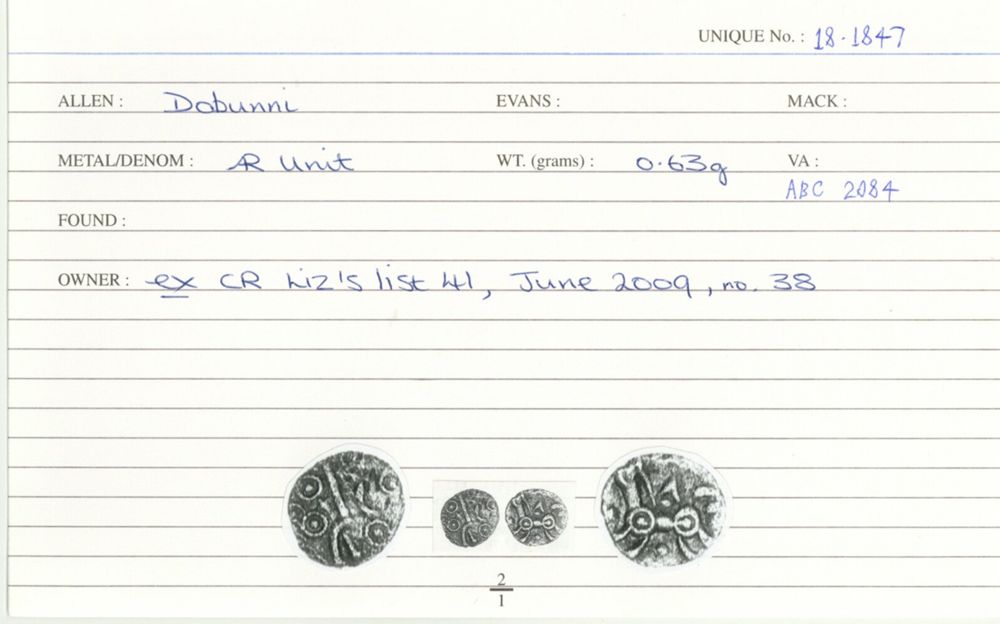 UNIQUE No. : 18·1847
ALLEN : Dobunni EVANS : MACK :
METAL/DENOM : AR Unit WT. (grams) : 0.63g VA :
ABC 2084
FOUND :
OWNER : ex CR Liz's list 41, June 2009, no. 38
2
1